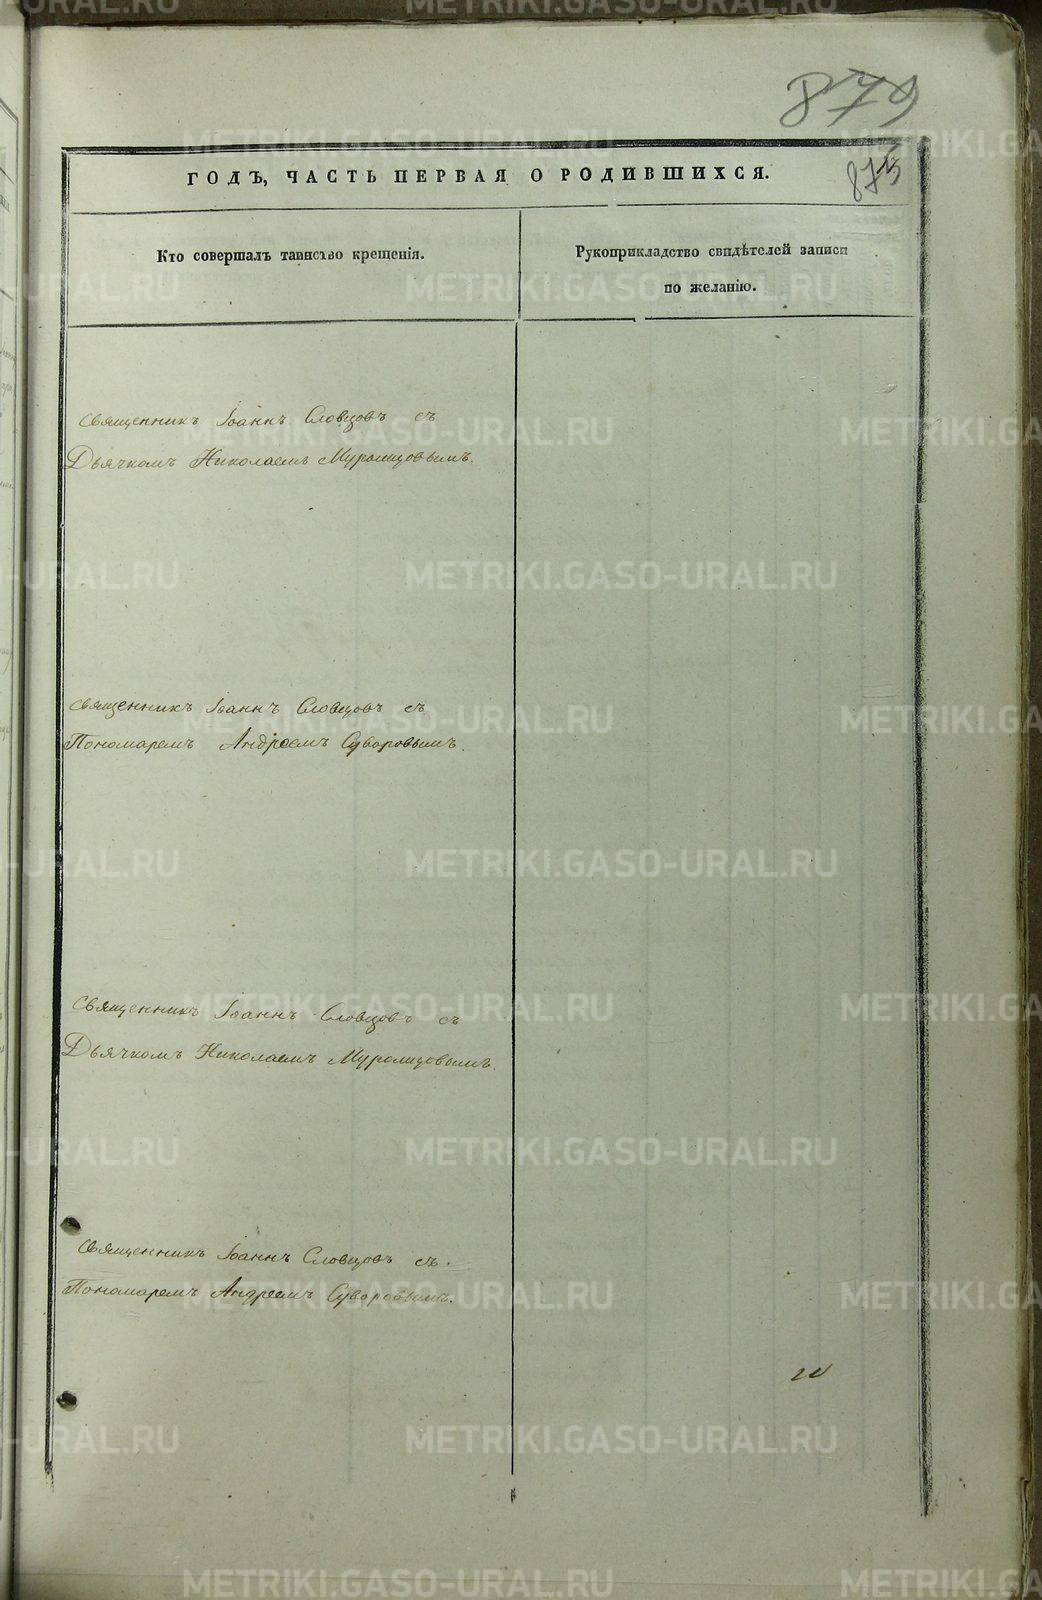 879
875
ГОДЪ, ЧАСТЬ ПЕРВАЯ О РОДИВШИХСЯ.
Кто совершалъ таинство крещенія.
Рукоприкладство свидѣтелей записи
по желанію.
Священникъ Іоаннъ Словцовъ съ
Дьячкомъ Николаемъ Муромцовымъ.
Священникъ Іоаннъ Словцовъ съ
Пономаремъ Андреемъ Суворовымъ.
Священникъ Іоаннъ Словцовъ съ
Дьячкомъ Николаемъ Муромцовымъ.
Священникъ Іоаннъ Словцовъ съ.
Пономаремъ Андреемъ Суворовымъ.
METRIKI.GASO-URAL.RU